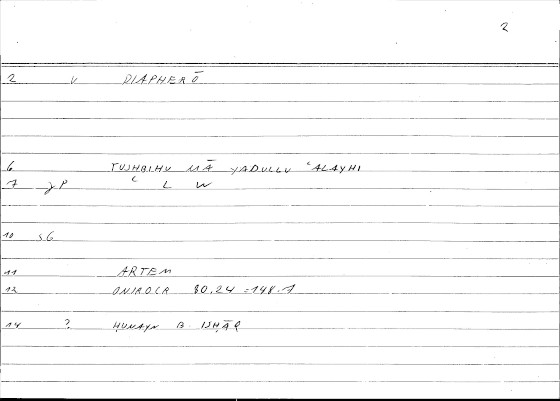 2
2 V DIAPHERŌ
6 TUSHBIHU MĀ YADULLU ʿALAYHI
7 gP C L W
10 SG
11 ARTEM
12 ONIROCR 80.24 = 148.1
14 ? ḤUNAYN B. ISḤĀQ